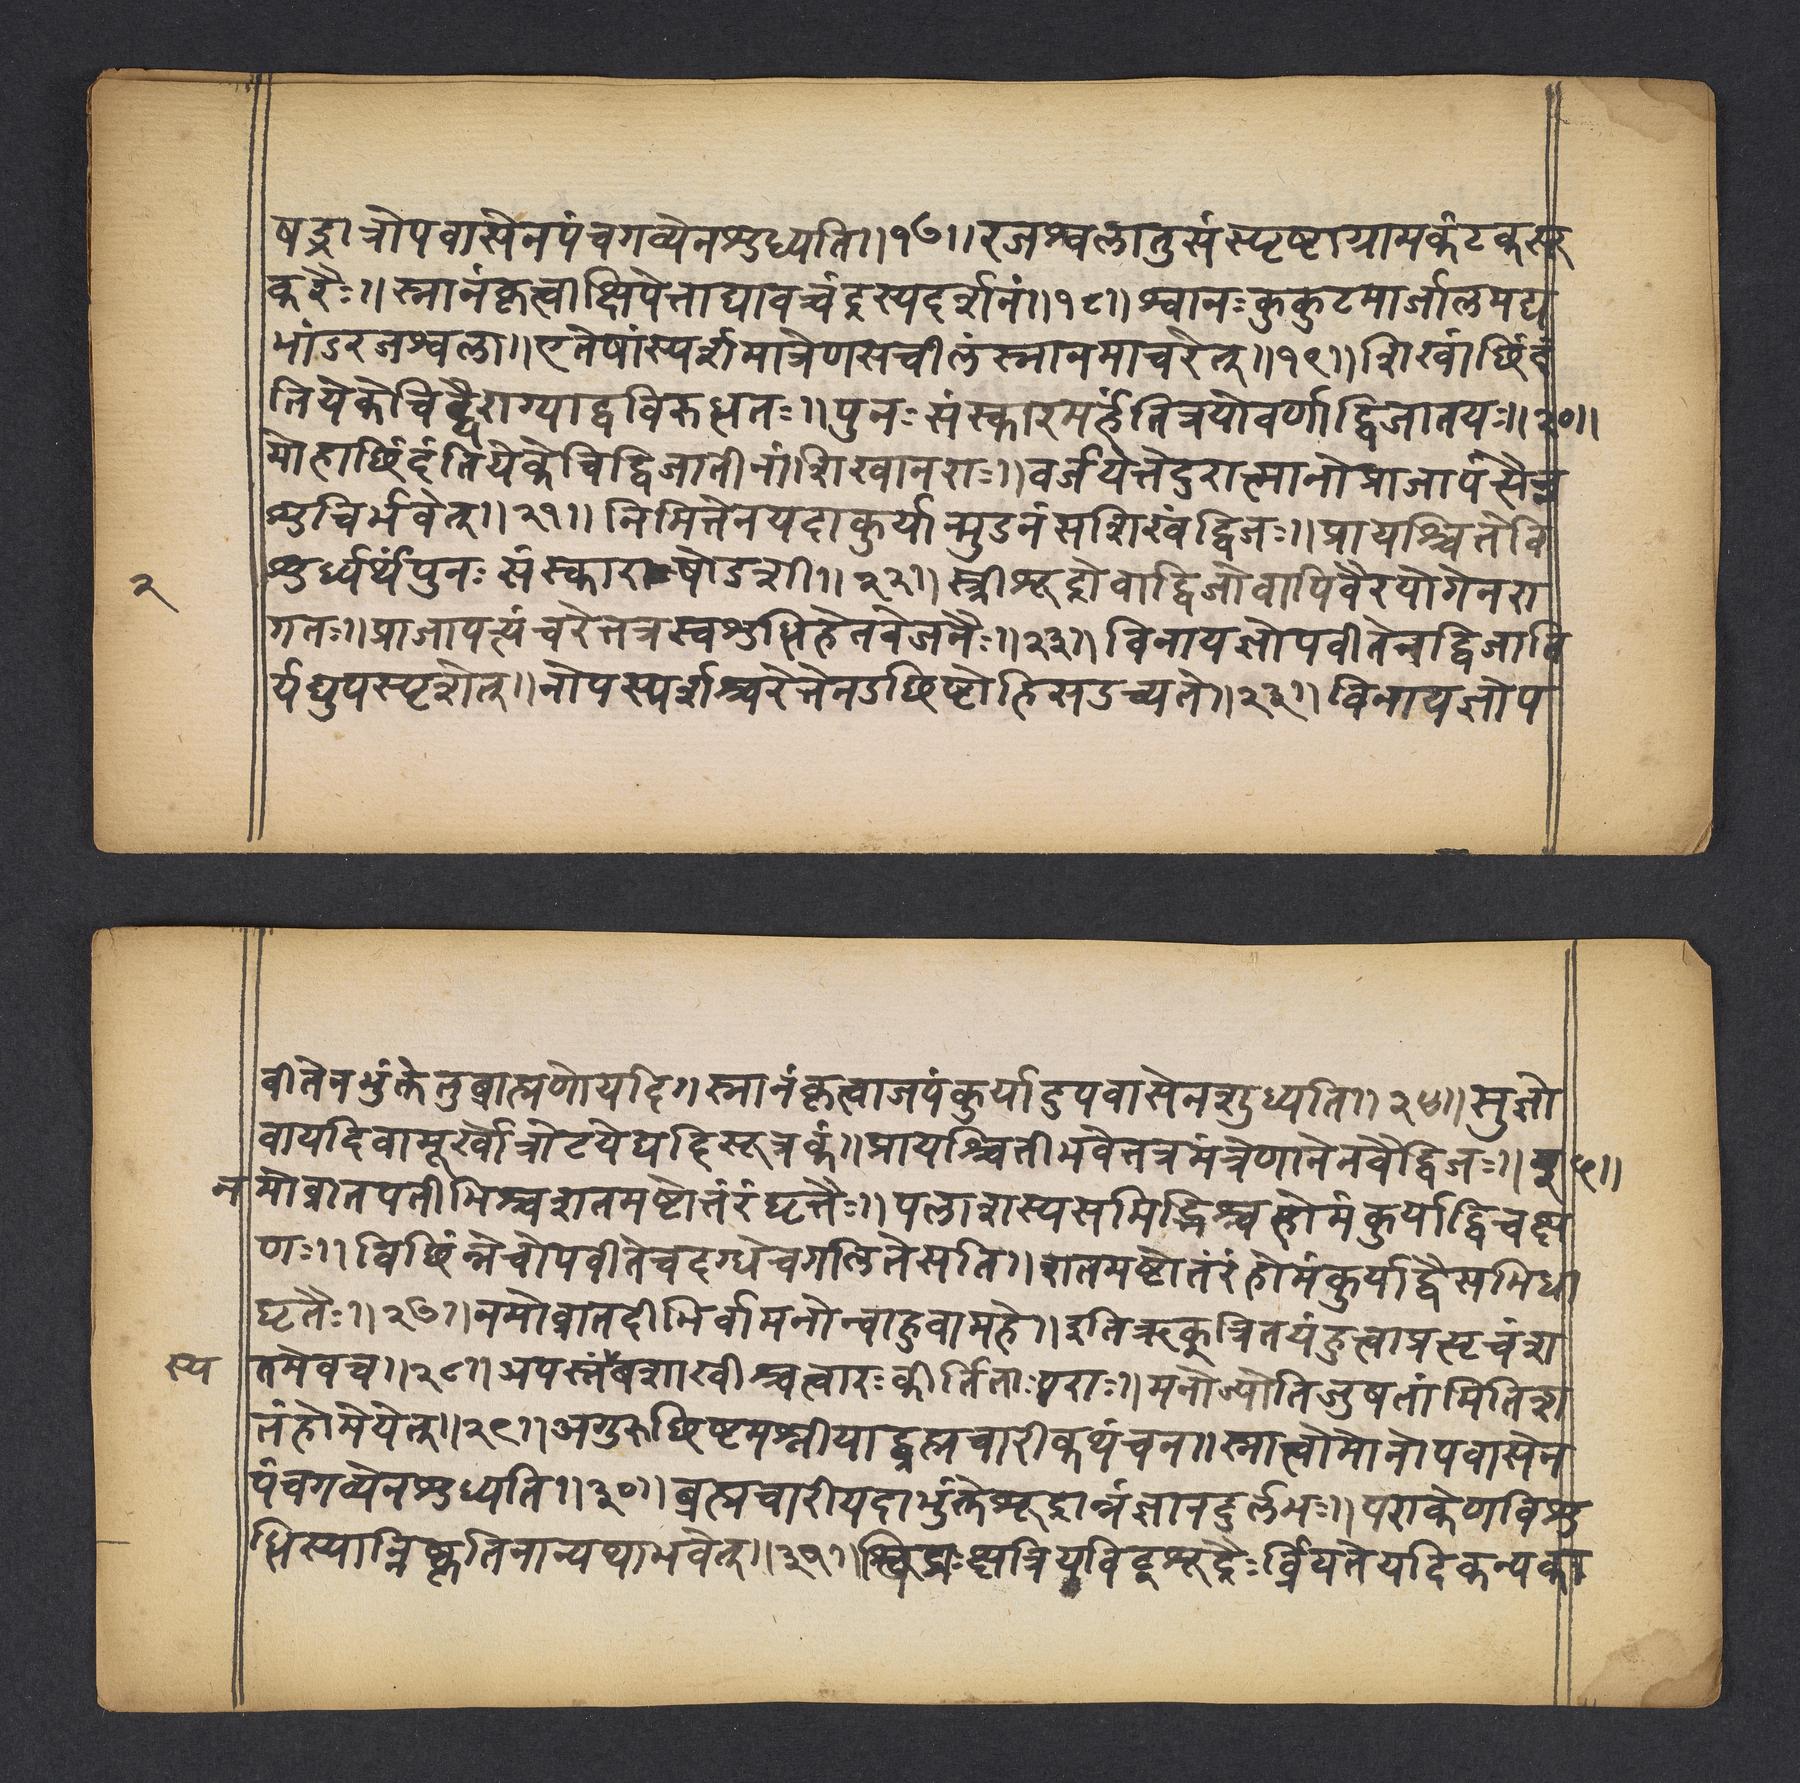 षड्रात्रोपवासेनपंचगव्येनशुध्यति।।१७।।रजश्वलातुसंस्पृष्टाग्रामर्कंटकसू
करैः।।स्नानंकृत्वाक्षिपेत्ताद्यावच्चंद्रस्यदर्शनं।।१८।।श्वानःकुकुटमार्जालमद्य
भांडरजश्वला।।एतेषांस्पर्शमात्रेणसचीलंस्नानमाचरेत्।।१९।।शिखांछिंदं
तियेकेचिद्वैराग्याद्वविरुधतः।।पुनःसंस्कारमर्हंतित्रयोवर्णाद्विजातयः।।२०।।
मोहाछिंदंतियेकेचिद्विजातीनां।शिखानराः।।वर्जयेत्तेदुरात्मानोप्राजापंत्सैन
शुचिर्भवेत्।।२१।।निमित्तेनयदाकुर्यान्मुडनंसशिखंद्विजः।।प्रायश्चित्तेवि
२
शुर्ध्यर्थंपुनःसंस्काराषोडशी।।२२।।स्त्रीशूद्रोवाद्विजोवापिवैरयोगेनरा
गतः।।प्राजापत्यंचरेत्तत्रस्वशुधिहेतवेजनैः।।२३।।विनायज्ञोपवीतेनद्विजाति
र्यद्युपस्पृशेत्।।नोपस्पर्शश्चरेत्तेनउछिष्टोहिसउच्यते।।२३।।विनायज्ञोप
वीतेनभुंक्तेतुब्राह्मणोयदि।स्नानंकृत्वाजपंकुर्यादुपवासेनशुध्यति।।२४।।सुज्ञो
वायदिवामूर्खोत्रोटयेद्यहिसूत्रकं।।प्रायश्चितीभवेत्तत्रमंत्रेणानेनवैद्विजः।।२५।।
नमोव्रातपतीभिश्चशतमष्टोत्तंरंघृत्तैः।।पलाशस्यसमिद्भिश्चहोमंकुर्याद्विचक्ष
णः।।विछिंन्नेचोपवीतेचदग्धेचगलितेसति।।शतमष्टोतंरंहोमंकुर्याद्वैसमिधा
घृतैः।।२७।।नमोव्रातदीभिर्वामनोन्वाहुवामहे।।इतिऋक्त्रितयंहुत्वाप्रत्सृचंश
स्य
तमेवच।।२८।।अपस्तंबशाखीश्चत्वारःकीर्तिताःपराः।।मनोज्योतिजुषतांमितिश
तंहोमेयेत्।।२९।।अगुरूछिष्टमश्नीयाद्ब्रह्मचारीकथंचन।।स्नात्वोमोनोपवासेन
पंचगव्येनशुध्यति।।३०।।ब्रह्मचारीयदाभुंक्तेशूद्रान्नंज्ञानदुर्लभः।।पराकेणविशु
धिस्यान्निष्कृतिनान्यथाभवेत्।।३१।।क्षत्रियविट्शूद्रैःर्व्रियतेयदिकन्यका